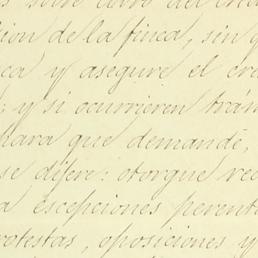 s sobre cobro del cré
cion de la finca, sin q
ca y asegure el cré
; y si ocurrieren trám
para que demande,
se difere: otorgue rec
a escepciones perento
rotestas, oposiciones y